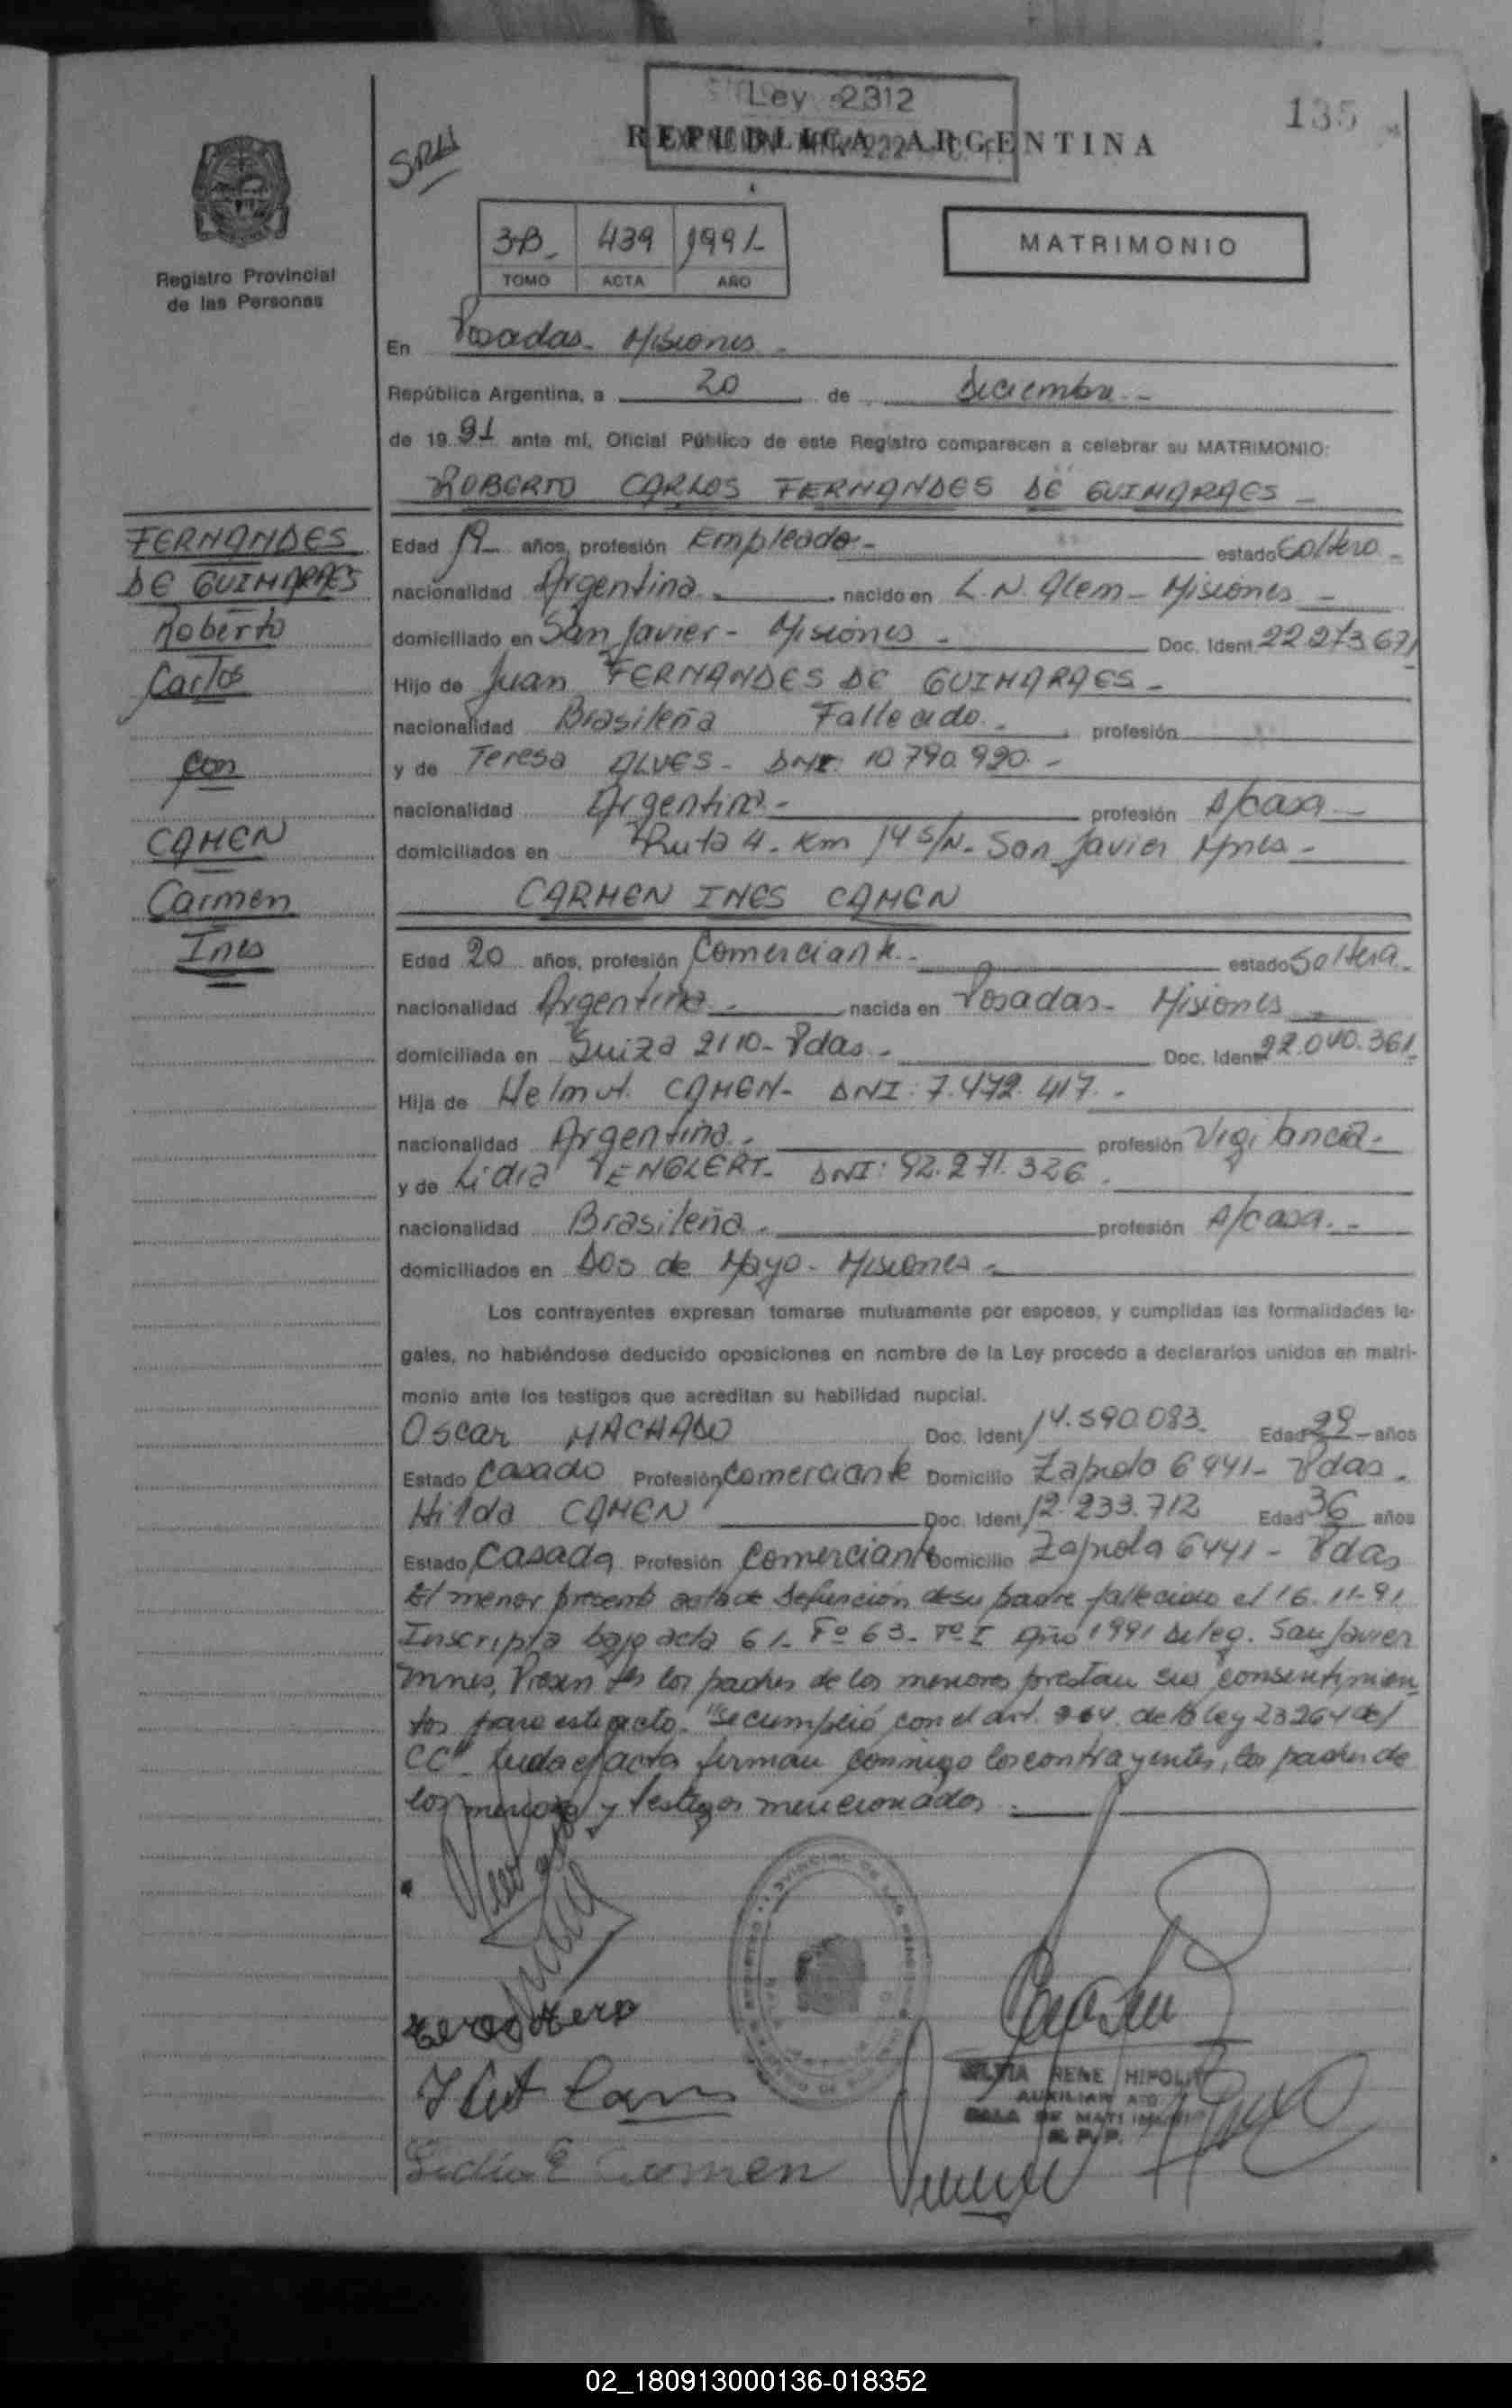 Ley 2312
135
REPUBLICA ARGENTINA
SRH
Registro Provincial
de las Personas
3-B 439 1991
TOMO ACTA AÑO
MATRIMONIO
En Posadas - Misiones -
República Argentina, a 20 de Diciembre -
de 1991 ante mí, Oficial Público de este Registro comparecen a celebrar su MATRIMONIO:
ROBERTO CARLOS FERNANDES DE GUIMARAES -
FERNANDES
DE GUIMARAES
Roberto
Carlos
con
CAMEN
Carmen
Ines
Edad 19 años, profesión Empleado - estado Soltero -
nacionalidad Argentina - nacido en L.N. Alem - Misiones -
domiciliado en San Javier - Misiones - Doc. Ident. 22.273.671
Hijo de Juan FERNANDES DE GUIMARAES -
nacionalidad Brasileña Fallecido - profesión
y de Teresa ALVES - DNI. 10.790.990 -
nacionalidad Argentina - profesión A/casa -
domiciliados en Ruta 4 - Km 14 S/N - San Javier Mnes -
CARMEN INES CAMEN
Edad 20 años, profesión Comerciante - estado Soltera -
nacionalidad Argentina - nacida en Posadas - Misiones
domiciliada en 2110 - Pdas - Doc. Ident. 22.040.361
Hija de Helmut CAMEN - DNI: 7.472.417 -
nacionalidad Argentina - profesión Vigilancia -
y de Lidia ENGLERT - DNI: 92.271.326 -
nacionalidad Brasileña - profesión A/casa -
domiciliados en Dos de Mayo - Misiones -
Los contrayentes expresan tomarse mutuamente por esposos, y cumplidas las formalidades le-
gales, no habiéndose deducido oposiciones en nombre de la Ley procedo a declararlos unidos en matri-
monio ante los testigos que acreditan su habilidad nupcial.
Oscar MACHADO Doc. Ident. 14.590.083 - Edad 29 años
Estado Casado Profesión Comerciante Domicilio Zapiola 6441 - Pdas -
Hilda CAMEN Doc. Ident. 12.233.712 Edad 36 años
Estado Casada Profesión Comerciante Domicilio Zapiola 6441 - Pdas
El menor presentó acta de defunción de su padre fallecido el 16-11-91
Inscripta bajo acta 61 - Fº 63 - Tº I Año 1991 Deleg. San Javier
Mnes, Presentes los padres de los menores prestan su consentimien-
tos para este acto. "Se cumplió con el art. 264 de la ley 23264 del
CC" Leída el acta firman conmigo los contrayentes, los padres de
los menores y testigos mencionados -
Lidia E Camen
RENE HIPOLIT
AUXILIAR
SALA DE MATRIMONIO
R. P. P.
02_180913000136-018352